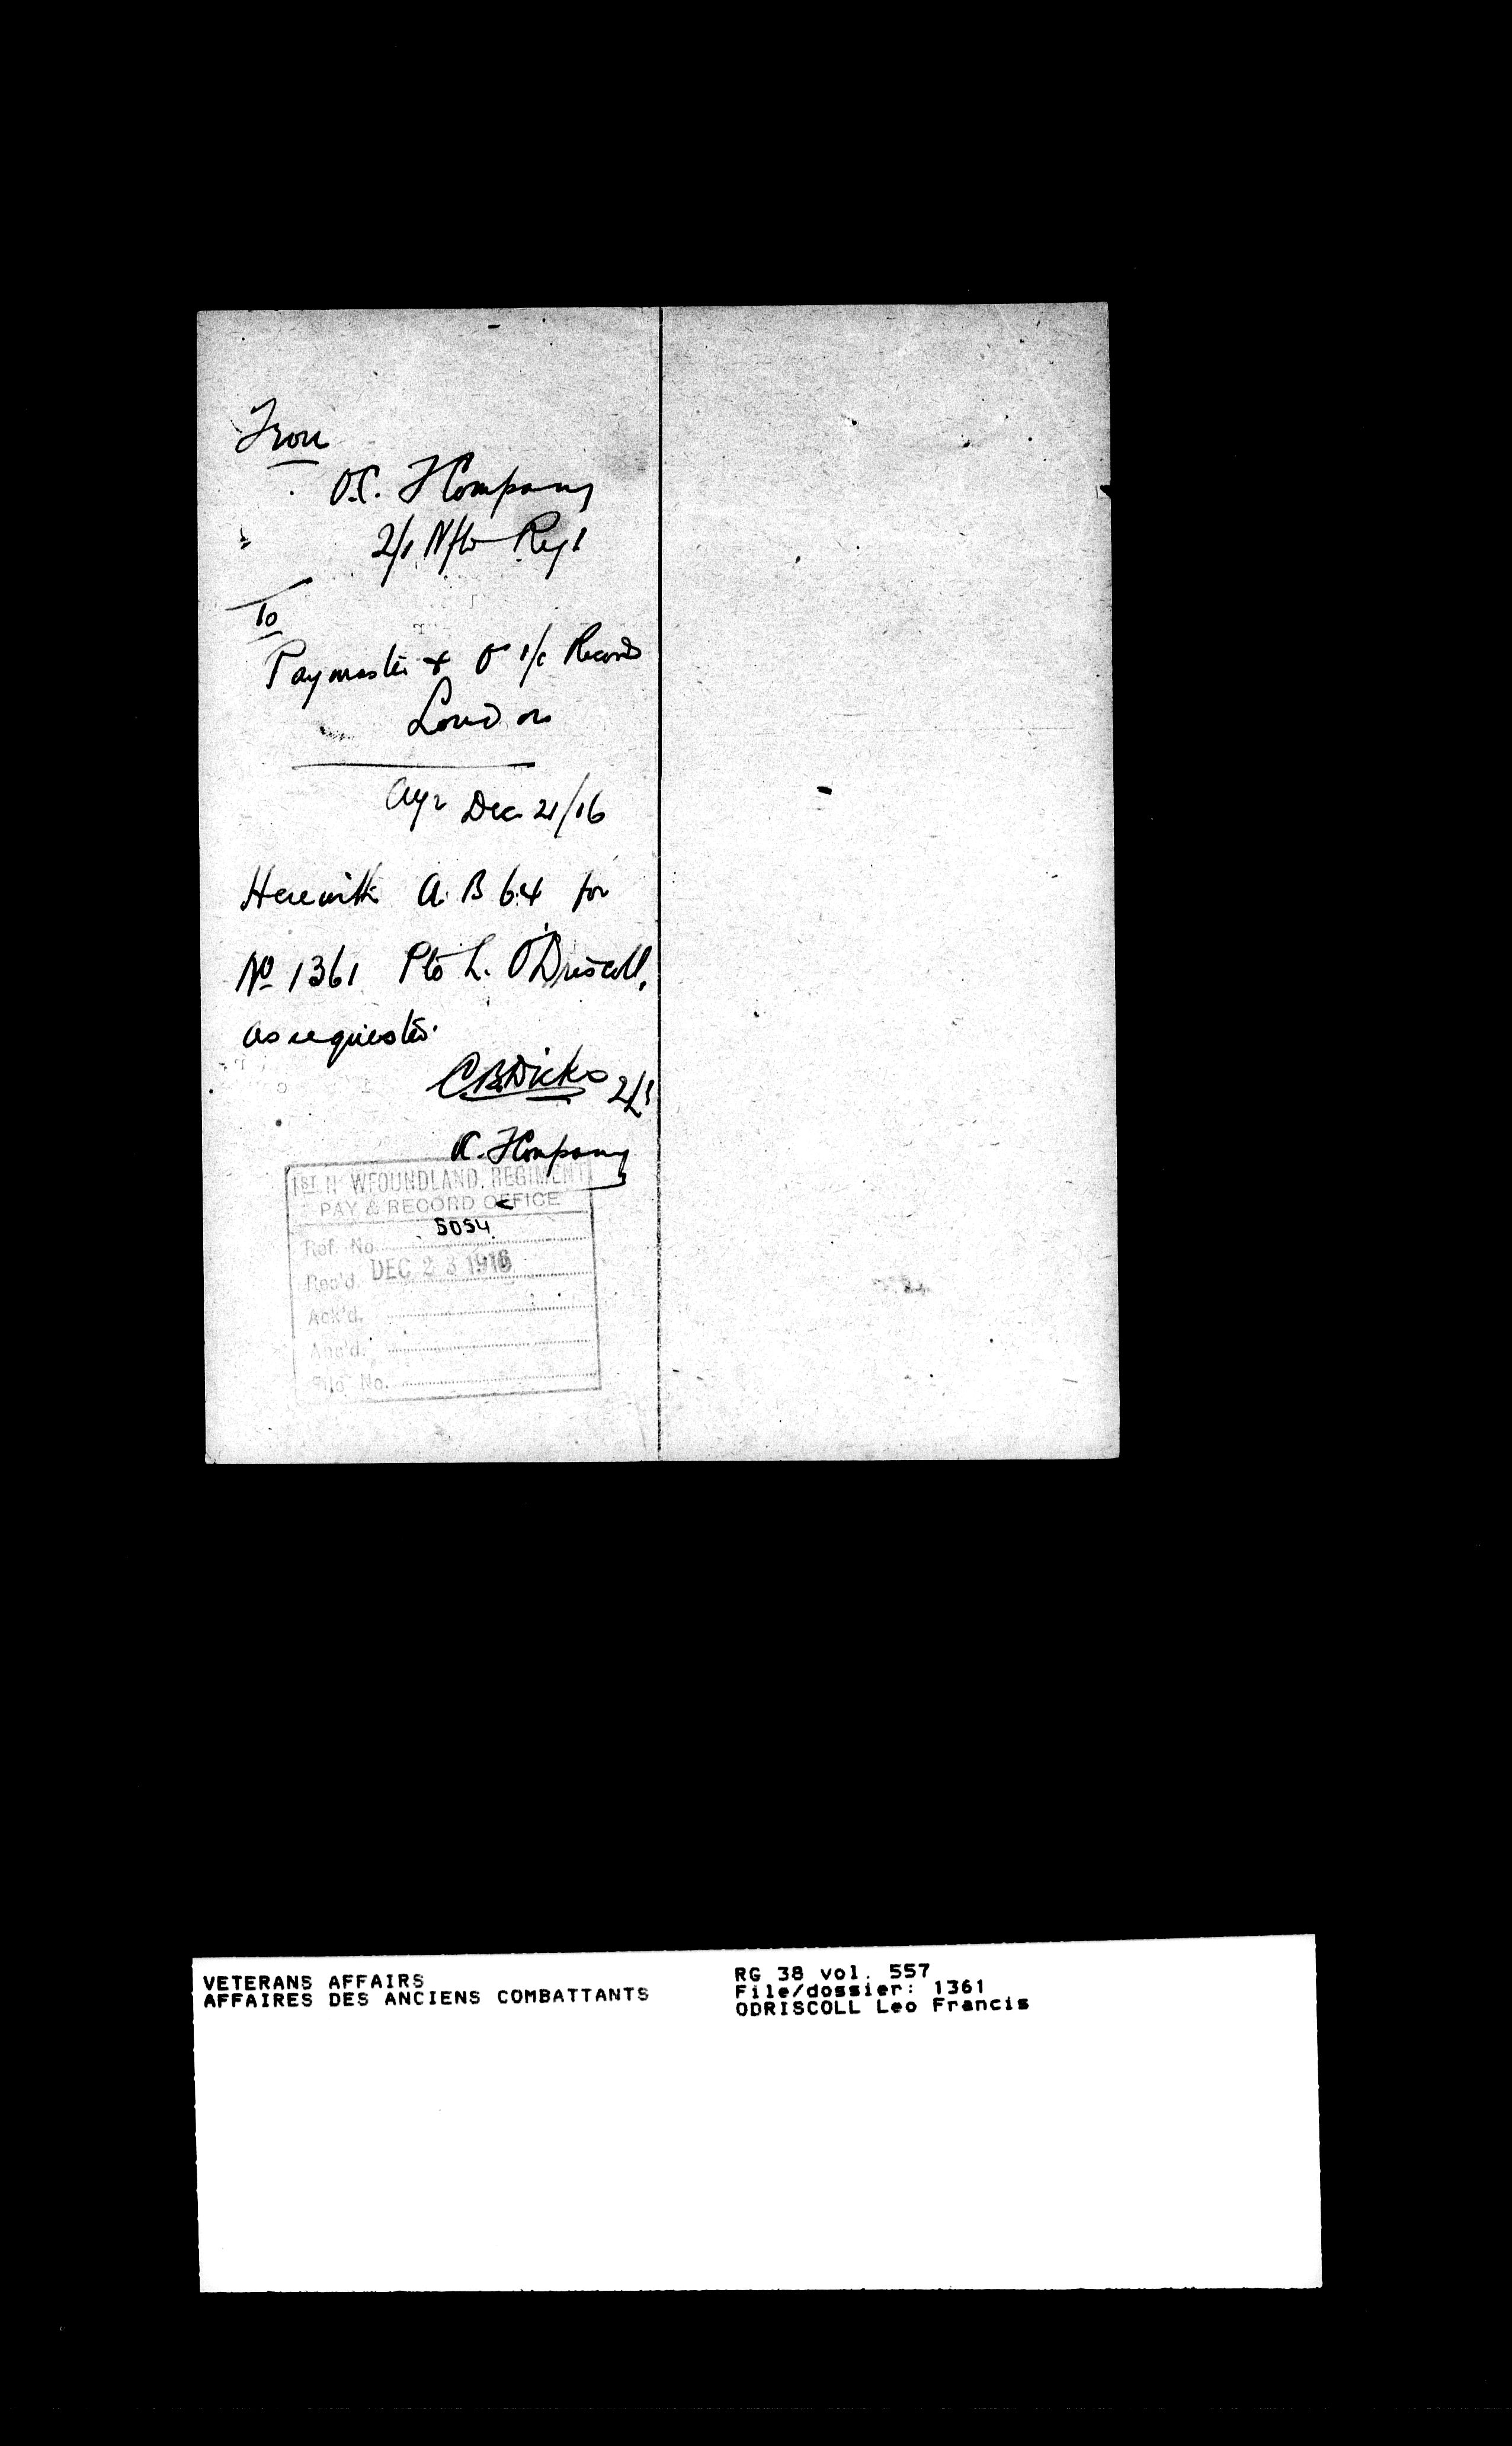 From
O.C. F Company
2/1 Nfld Regt
To
Paymaster + O i/c Records
London
Ayr Dec 21/16
Herewith A.B 64 for
No 1361 Pte L. O'Driscoll,
as requested.
C.B. Dicks 2/Lt
OC. F Company
1ST NEWFOUNDLAND REGIMENT
PAY & RECORD OFFICE
Ref. No. 5054
Rec'd. DEC 23 1916
Ack'd.
Ans'd.
File No.
VETERANS AFFAIRS
AFFAIRES DES ANCIENS COMBATTANTS
RG 38 vol. 557
File/dossier: 1361
ODRISCOLL Leo Francis